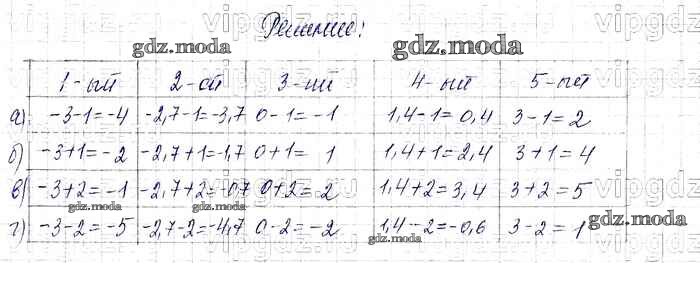 Решение:
1-ый 2-ой 3-ий 4-ый 5-ый
а) -3-1=-4 -2,7-1=-3,7 0-1=-1 1,4-1=0,4 3-1=2
б) -3+1=-2 -2,7+1=-1,7 0+1=1 1,4+1=2,4 3+1=4
в) -3+2=-1 -2,7+2=-0,7 0+2=2 1,4+2=3,4 3+2=5
г) -3-2=-5 -2,7-2=-4,7 0-2=-2 1,4-2=-0,6 3-2=1
gdz.moda
gdz.moda
gdz.moda
gdz.moda
gdz.moda
gdz.moda
vipgdz.ru